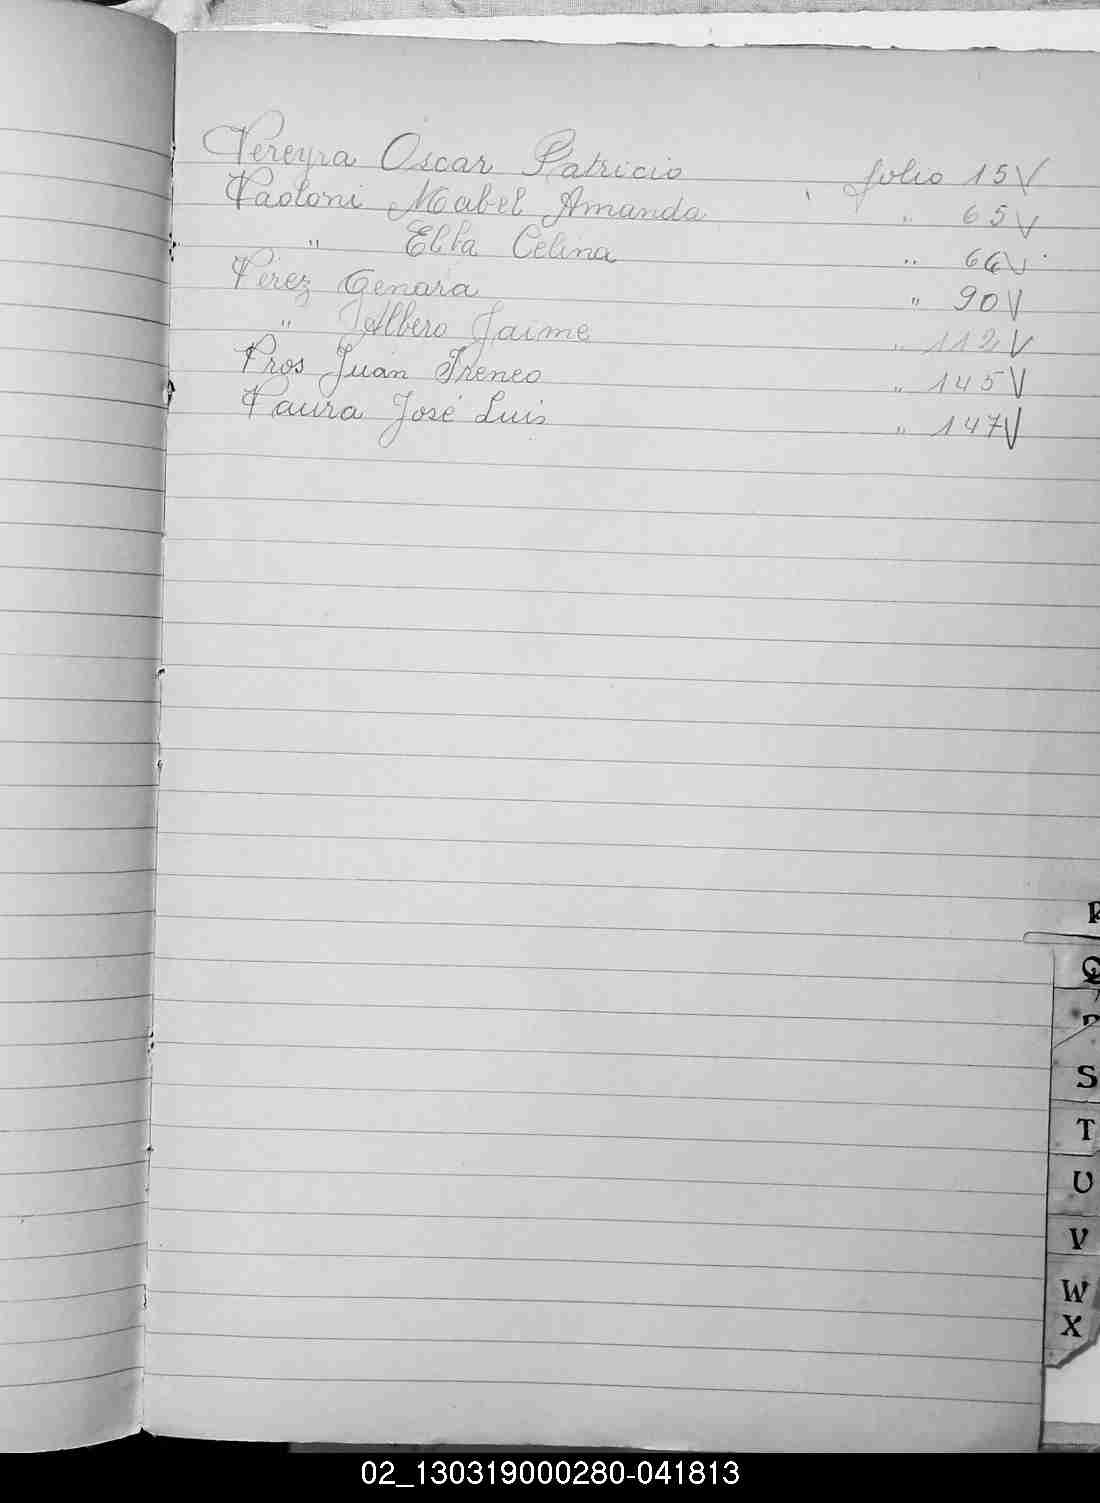 Pereyra Oscar Patricio folio 15 V
Paoloni Mabel Amanda " 65 V
" Elba Celina " 66 V
Pérez Genara " 90 V
" Albero Jaime " 112 V
Pros Juan Ireneo " 145 V
Paura José Luis " 147 V
P
Q
R
S
T
U
V
W
X
02_130319000280-041813